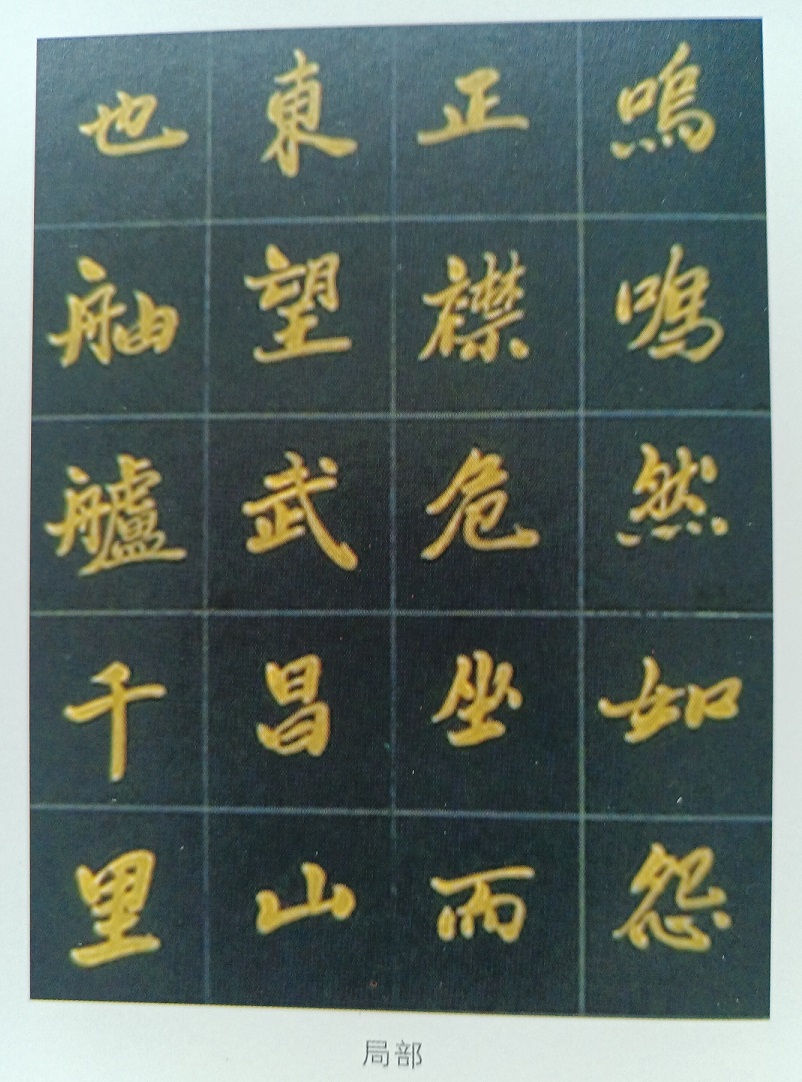 嗚嗚然如怨
正襟危坐而
東望武昌山
也舳艫千里
局部